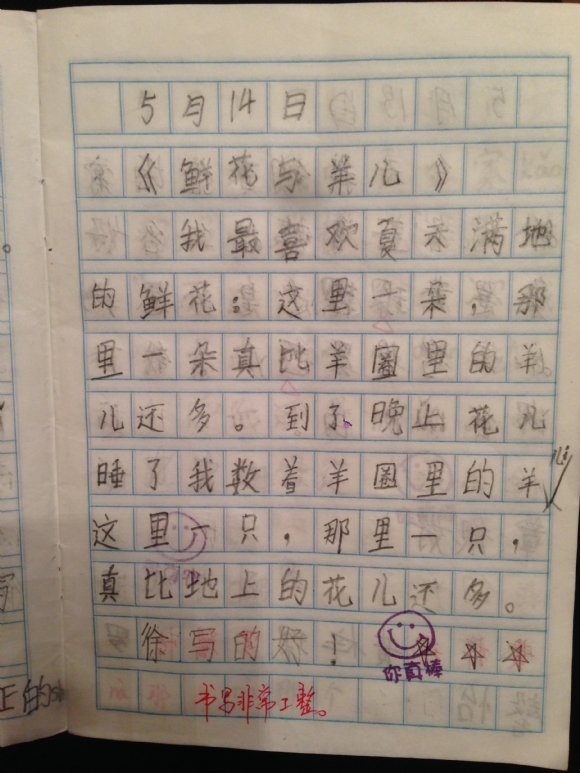 5月14日
《鲜花与羊儿》
我最喜欢夏天满地
的鲜花：这里一朵，那
里一朵真比羊圈里的羊
儿还多。到了晚上花儿
睡了我数着羊圈里的羊儿
这里一只，那里一只，
真比地上的花儿还多。
徐写的好！
你真棒
书写非常工整。
正的